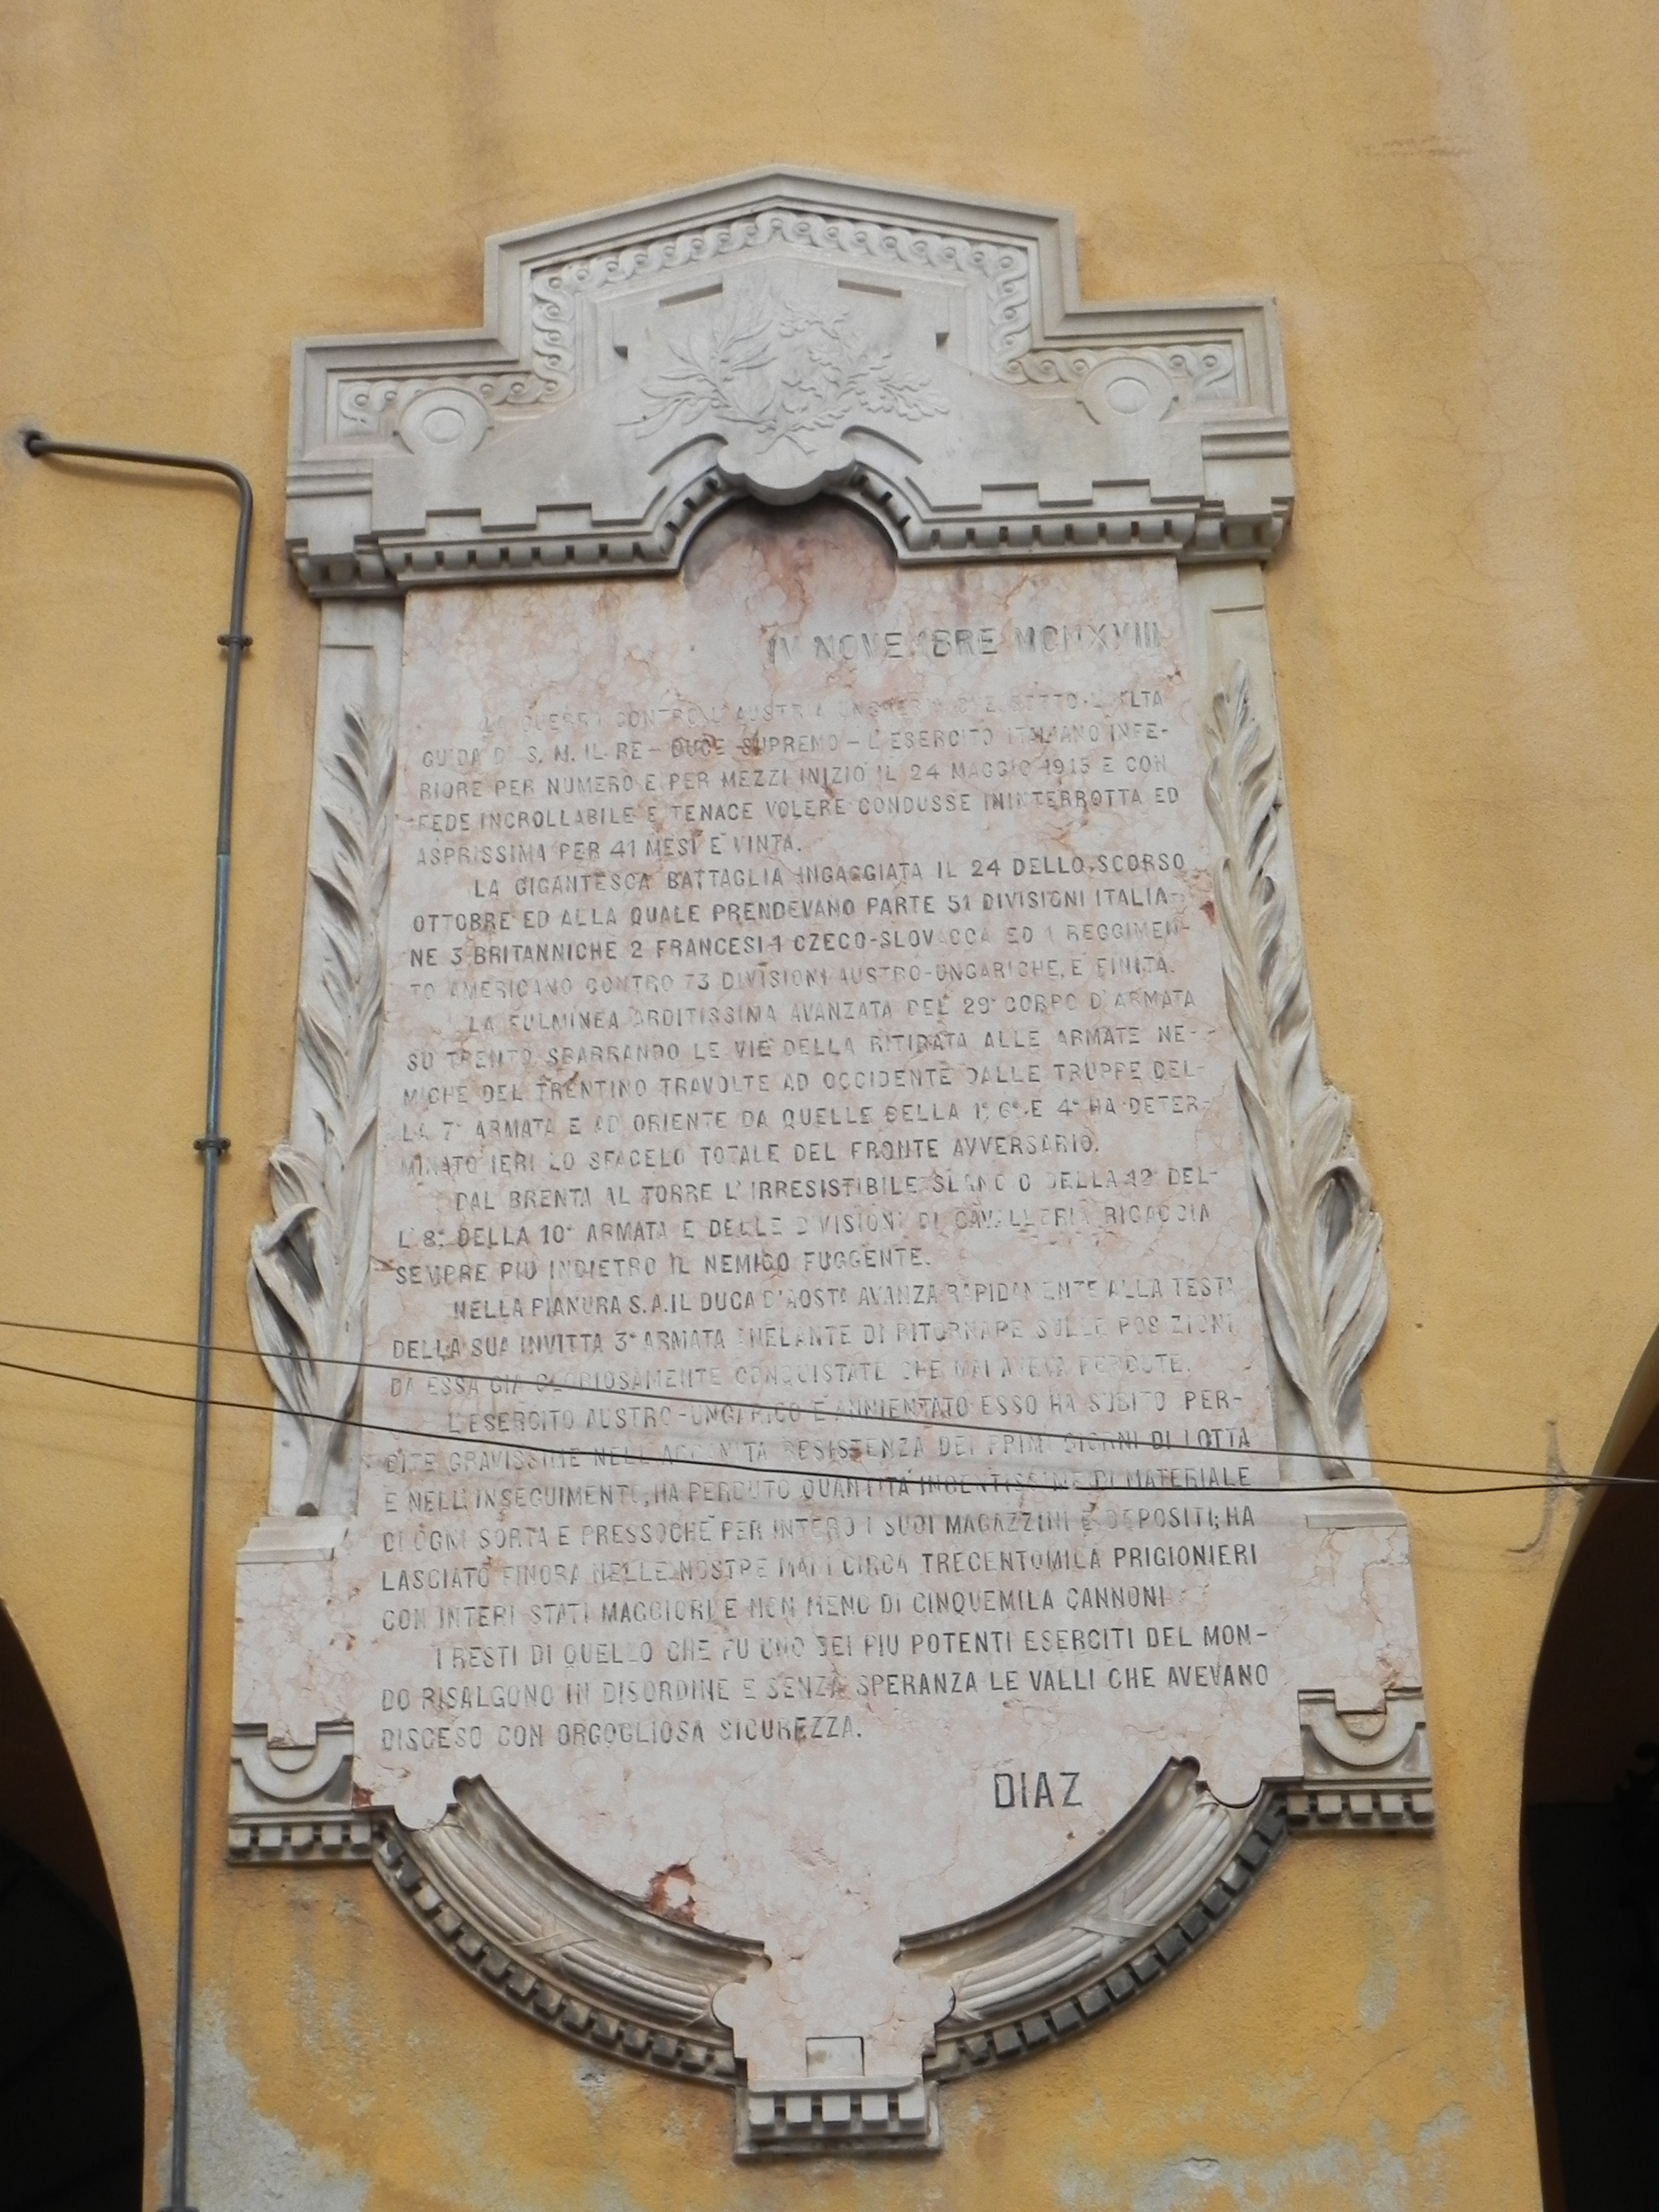 IV NOVEMBRE MCMXVIII
LA GUERRA CONTRO L'AUSTRIA UNGHERIA CHE SOTTO L'ALTA
GUIDA DI S. M. IL RE – DUCE SUPREMO – L'ESERCITO ITALIANO INFE-
RIORE PER NUMERO E PER MEZZI INIZIÒ IL 24 MAGGIO 1915 E CON
FEDE INCROLLABILE E TENACE VOLERE CONDUSSE ININTERROTTA ED
ASPRISSIMA PER 41 MESI È VINTA.
LA GIGANTESCA BATTAGLIA INGAGGIATA IL 24 DELLO SCORSO
OTTOBRE ED ALLA QUALE PRENDEVANO PARTE 51 DIVISIONI ITALIA-
NE 3 BRITANNICHE 2 FRANCESI 1 CZECO-SLOVACCA ED 1 REGGIMEN-
TO AMERICANO CONTRO 73 DIVISIONI AUSTRO-UNGARICHE, È FINITA.
LA FULMINEA ARDITISSIMA AVANZATA DEL 29° CORPO D'ARMATA
SU TRENTO SBARRANDO LE VIE DELLA RITIRATA ALLE ARMATE NE-
MICHE DEL TRENTINO TRAVOLTE AD OCCIDENTE DALLE TRUPPE DEL-
LA 7ª ARMATA E AD ORIENTE DA QUELLE DELLA 1ª, 6ª E 4ª HA DETER-
MINATO IERI LO SFACELO TOTALE DEL FRONTE AVVERSARIO.
DAL BRENTA AL TORRE L'IRRESISTIBILE SLANCIO DELLA 12ª DEL-
L'8ª DELLA 10ª ARMATA E DELLE DIVISIONI DI CAVALLERIA RICACCIA
SEMPRE PIÙ INDIETRO IL NEMICO FUGGENTE.
NELLA PIANURA S.A.IL DUCA D'AOSTA AVANZA RAPIDAMENTE ALLA TESTA
DELLA SUA INVITTA 3ª ARMATA ANELANTE DI RITORNARE SULLE POSIZIONI
DA ESSA GIÀ GLORIOSAMENTE CONQUISTATE CHE MAI AVEVA PERDUTE.
L'ESERCITO AUSTRO-UNGARICO È ANNIENTATO ESSO HA SUBITO PER-
DITE GRAVISSIME NELL'ACCANITA RESISTENZA DEI PRIMI GIORNI DI LOTTA
E NELL'INSEGUIMENTO, HA PERDUTO QUANTITÀ INGENTISSIME DI MATERIALE
DI OGNI SORTA E PRESSOCHÉ PER INTERO I SUOI MAGAZZINI E DEPOSITI; HA
LASCIATO FINORA NELLE NOSTRE MANI CIRCA TRECENTOMILA PRIGIONIERI
CON INTERI STATI MAGGIORI E NON MENO DI CINQUEMILA CANNONI
I RESTI DI QUELLO CHE FU UNO DEI PIÙ POTENTI ESERCITI DEL MON-
DO RISALGONO IN DISORDINE E SENZA SPERANZA LE VALLI CHE AVEVANO
DISCESO CON ORGOGLIOSA SICUREZZA.
DIAZ